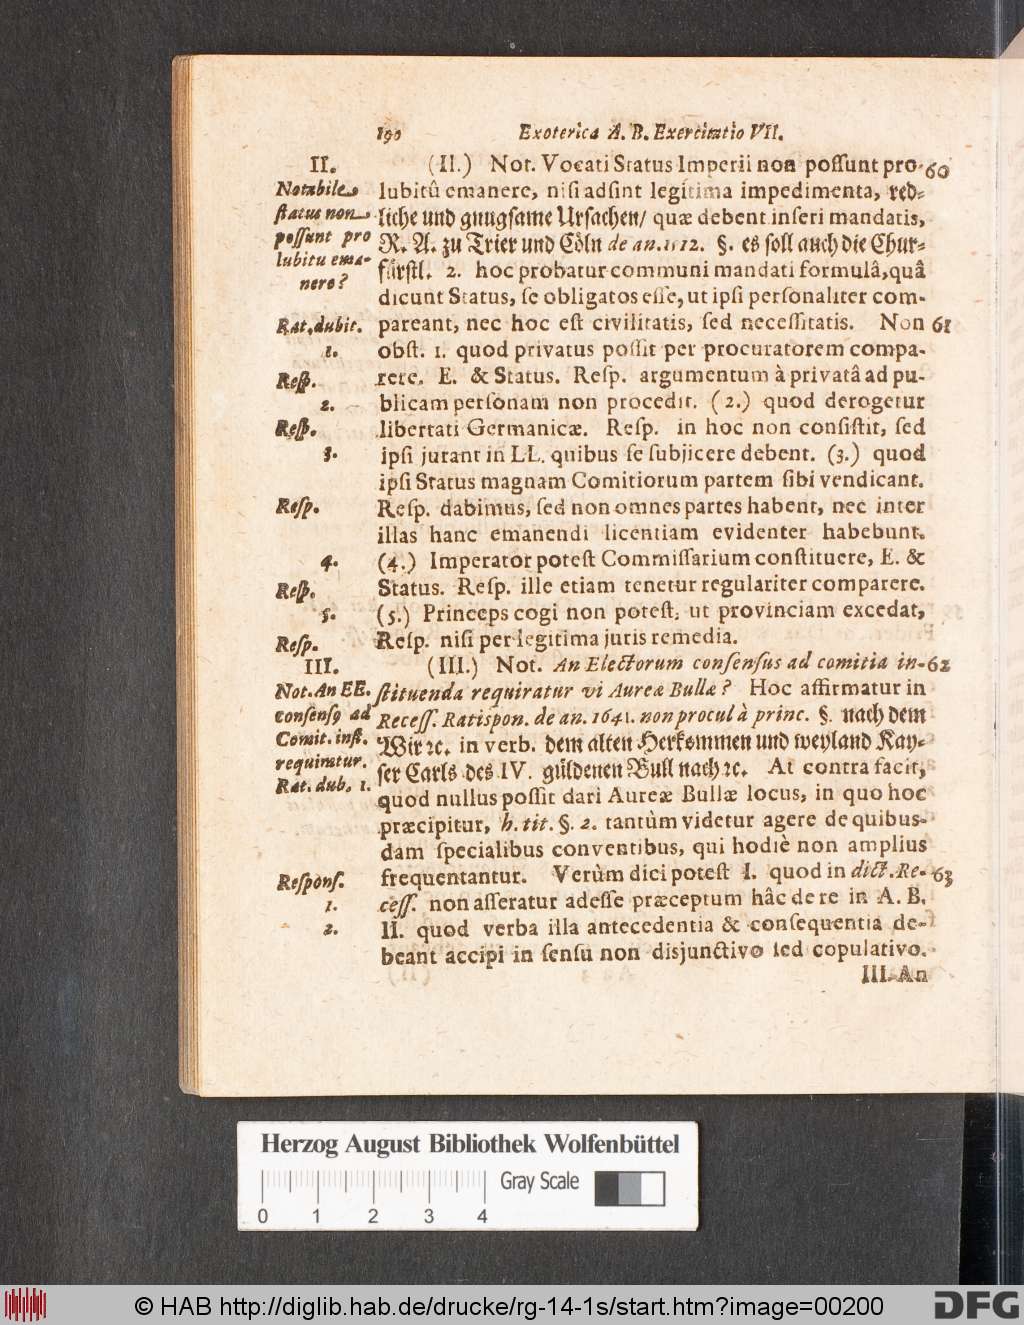 190 Exoterica A. B. Exercitatio VII.
II.
Notabile
status non
possunt pro
lubitu ema-
nere?
Rat. dubit.
1.
Resp.
2.
Resp.
3.
Resp.
4.
Resp.
5.
Resp.
III.
Not. An EE.
consensꝰ ad
Comit. inst.
requiratur.
Rat. dub. 1.
Respons.
1.
2.
(II.) Not. Vocati Status Imperii non poſſunt pro- 60
lubitû emanere, niſi adſint legitima impedimenta, red-
liche und gnugſame Urſachen/ quæ debent inſeri mandatis,
R. A. zu Trier und Cöln de an. 1512. §. es ſoll auch die Chur-
fürſtl. 2. hoc probatur communi mandati formulâ, quâ
dicunt Status, ſe obligatos eſſe, ut ipſi perſonaliter com-
pareant, nec hoc eſt civilitatis, ſed neceſſitatis. Non 61
obſt. 1. quod privatus poſſit per procuratorem compa-
rere. E. & Status. Reſp. argumentum à privatâ ad pu-
blicam perſonam non procedit. (2.) quod derogetur
libertati Germanicæ. Reſp. in hoc non conſiſtit, ſed
ipſi jurant in LL. quibus ſe ſubjicere debent. (3.) quod
ipſi Status magnam Comitiorum partem ſibi vendicant.
Reſp. dabimus, ſed non omnes partes habent, nec inter
illas hanc emanendi licentiam evidenter habebunt.
(4.) Imperator poteſt Commiſſarium conſtituere, E. &
Status. Reſp. ille etiam tenetur regulariter comparere.
(5.) Princeps cogi non poteſt, ut provinciam excedat,
Reſp. niſi per legitima juris remedia.
(III.) Not. An Electorum conſenſus ad comitia in- 62
ſtituenda requiratur vi Aureæ Bullæ? Hoc affirmatur in
Receſſ. Ratispon. de an. 1641. non procul à princ. §. nach dem
Wir ꝛc. in verb. dem alten Herkommen und weyland Kay-
ſer Carls des IV. güldenen Bull nach ꝛc. At contra facit,
quod nullus poſſit dari Aureæ Bullæ locus, in quo hoc
præcipitur, h. tit. §. 2. tantùm videtur agere de quibus-
dam ſpecialibus conventibus, qui hodiè non amplius
frequentantur. Verùm dici poteſt I. quod in dict. Re- 63
ceſſ. non aſſeratur adeſſe præceptum hâc de re in A. B.
II. quod verba illa antecedentia & conſequentia de-
beant accipi in ſenſu non disjunctivo ſed copulativo.
III. An
Herzog August Bibliothek Wolfenbüttel
Gray Scale
0 1 2 3 4
© HAB http://diglib.hab.de/drucke/rg-14-1s/start.htm?image=00200
DFG